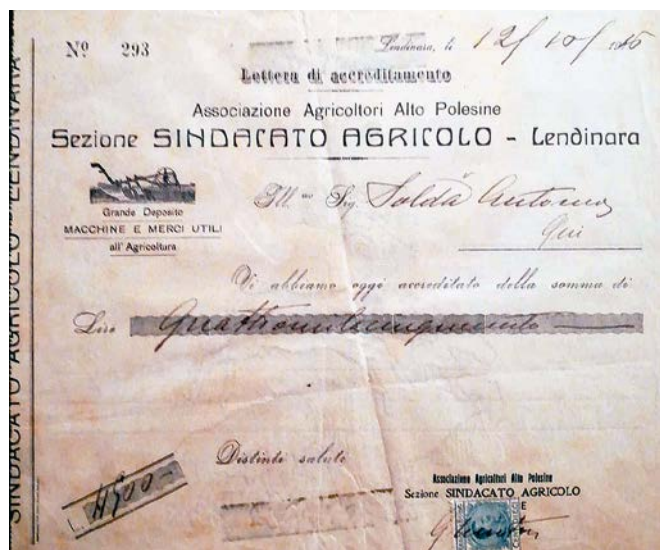 Nº 293
Lendinara, li 12/10/
Lettera di accreditamento
Associazione Agricoltori Alto Polesine
Sezione SINDACATO AGRICOLO - Lendinara
Grande Deposito
MACCHINE E MERCI UTILI
all' Agricoltura
Ill.mo Sig. Soldà Antonio
Qui
Vi abbiamo oggi accreditato della somma di
Lire Quattromilacinquecento
Distinti saluti
L. 4500
Associazione Agricoltori Alto Polesine
Sezione SINDACATO AGRICOLO
SINDACATO AGRICOLO LENDINARA